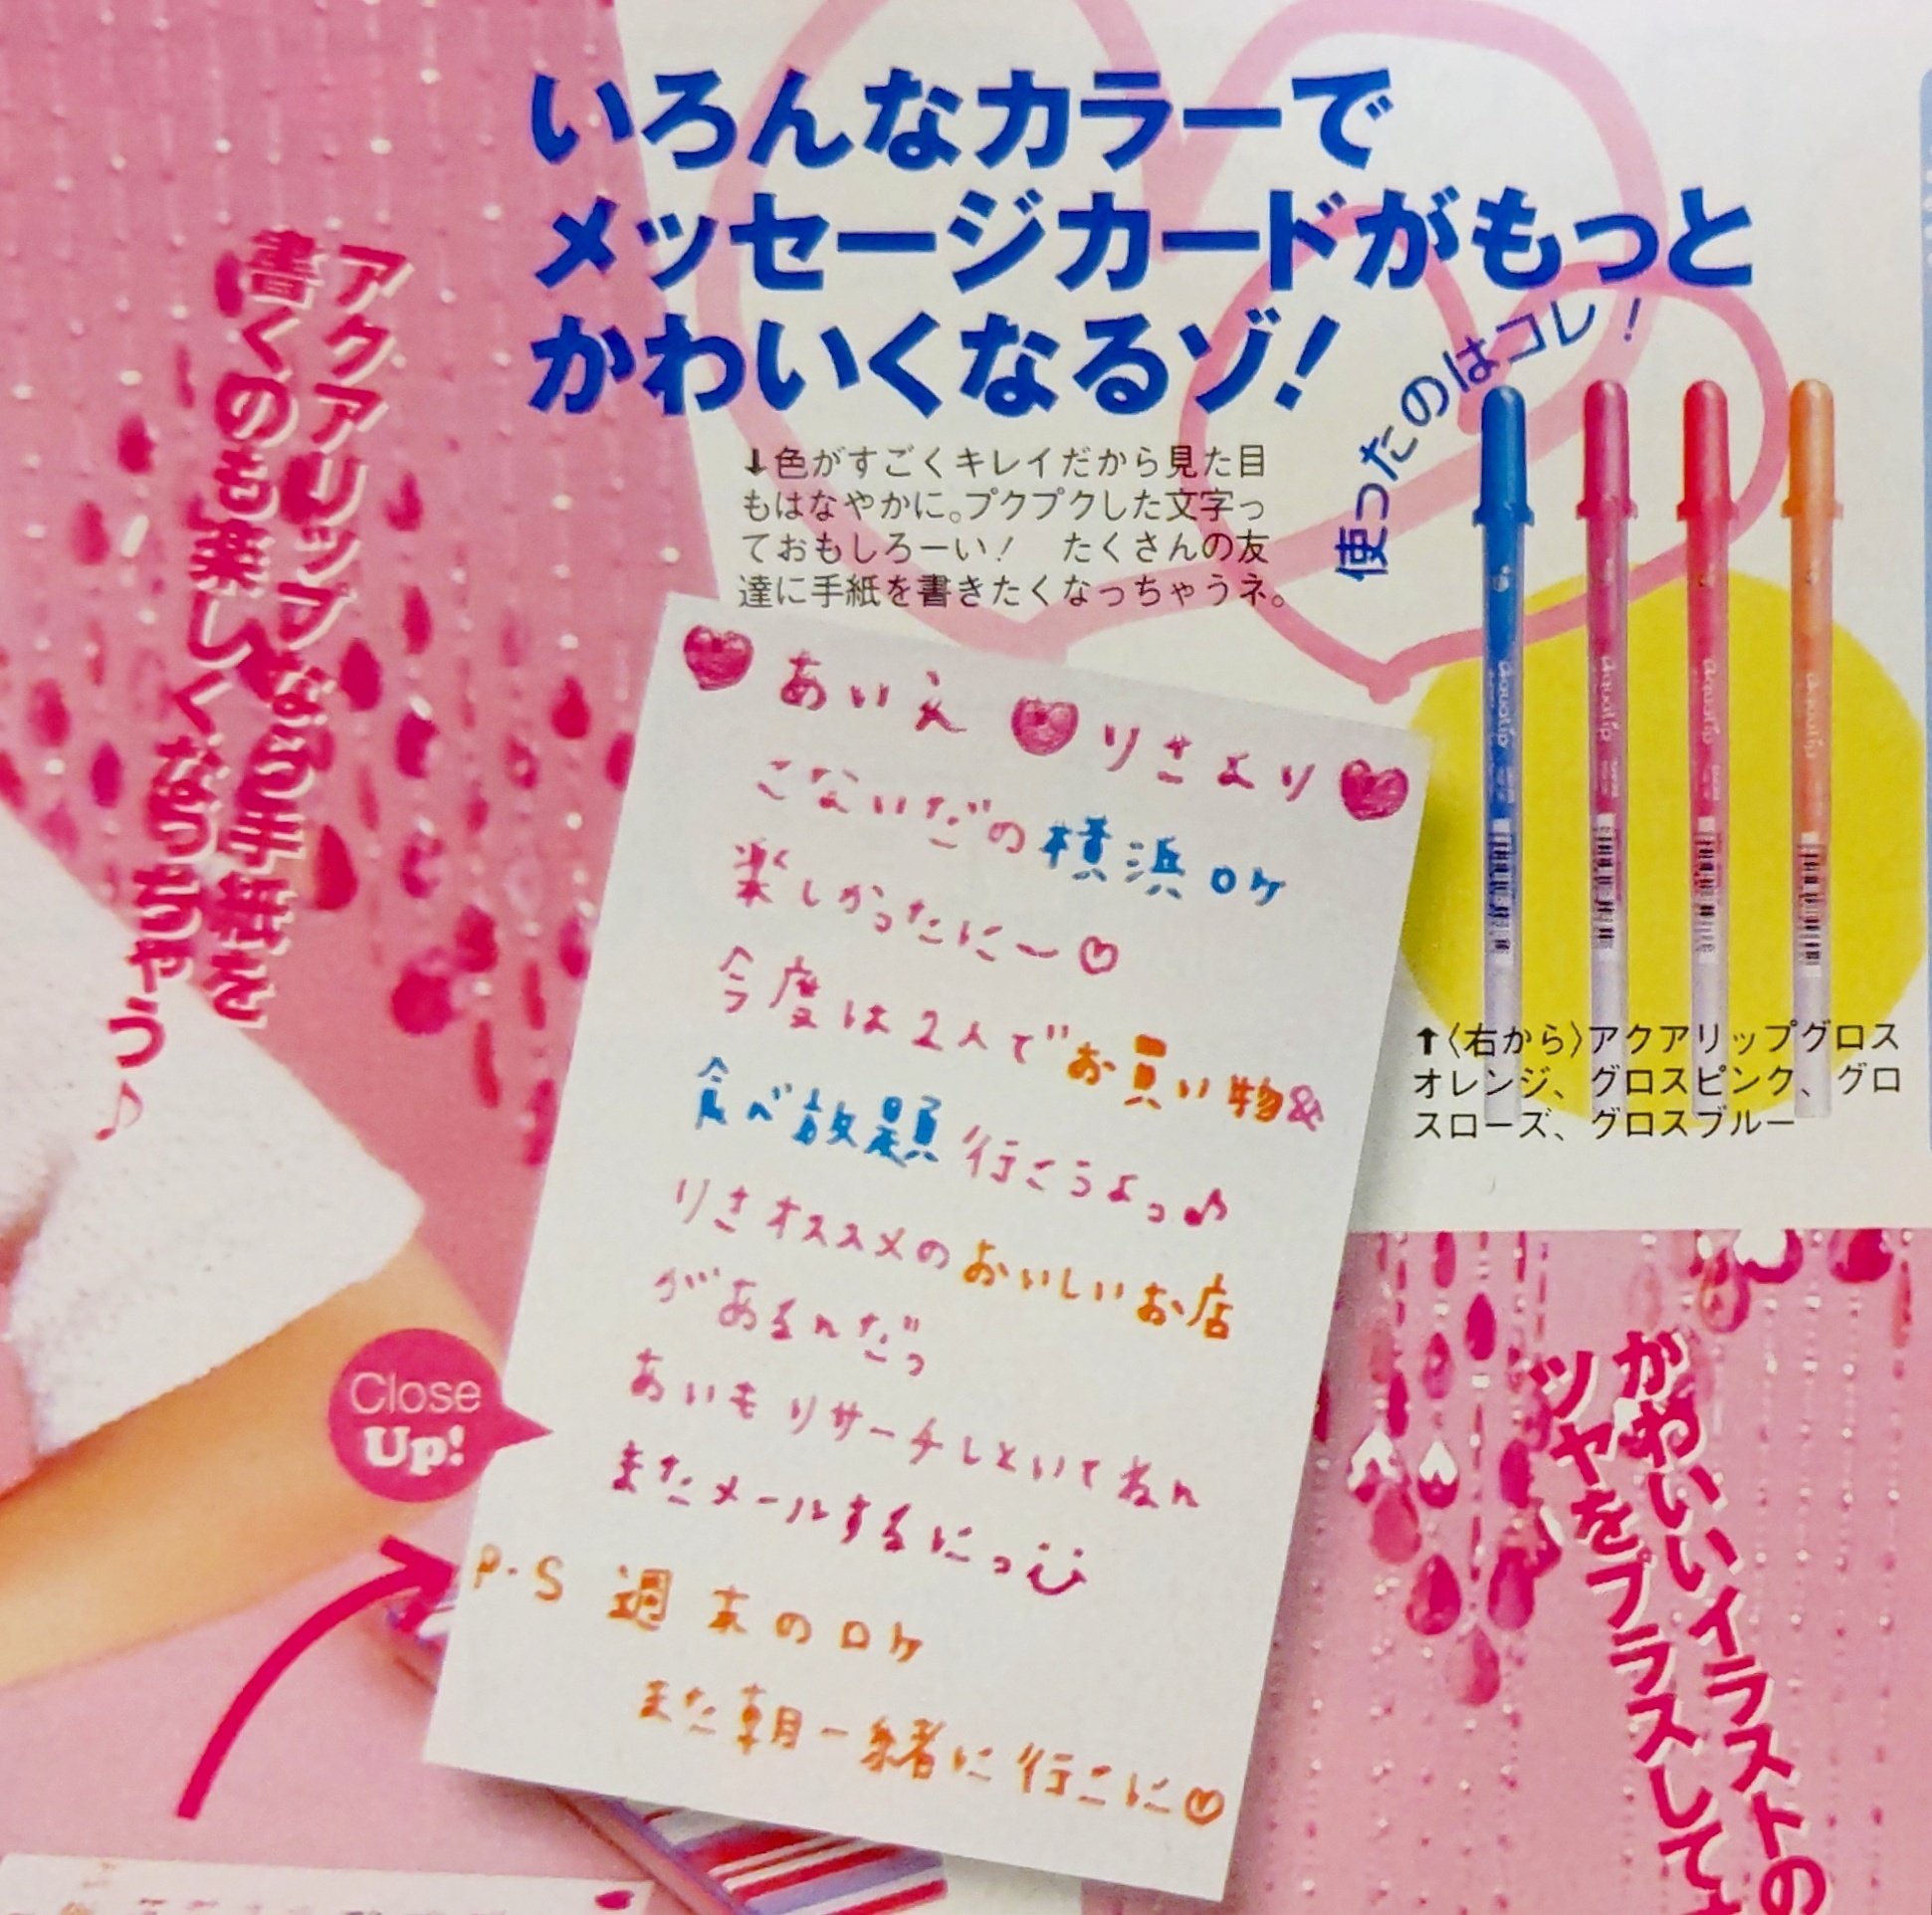 いろんなカラーで
メッセージカードがもっと
かわいくなるゾ!
アクアリップなら手紙を
書くのも楽しくなっちゃう♪
↓色がすごくキレイだから見た目
もはなやかに。プクプクした文字っ
ておもしろーい! たくさんの友
達に手紙を書きたくなっちゃうネ。
使ったのはコレ!
↑〈右から〉アクアリップグロス
オレンジ、グロスピンク、グロ
スローズ、グロスブルー
♥あいえ♥りさより♥
こないだの横浜ロケ
楽しかったにー♡
今度は2人でお買い物&
食べ放題行こうよっ♪
りさオススメのおいしいお店
があるんだっ
あいもリサーチしといてねん
またメールするにっ
P.S 週末のロケ
また朝一緒に行こに♡
Close
Up!
かわいいイラストの
ツヤをプラスして